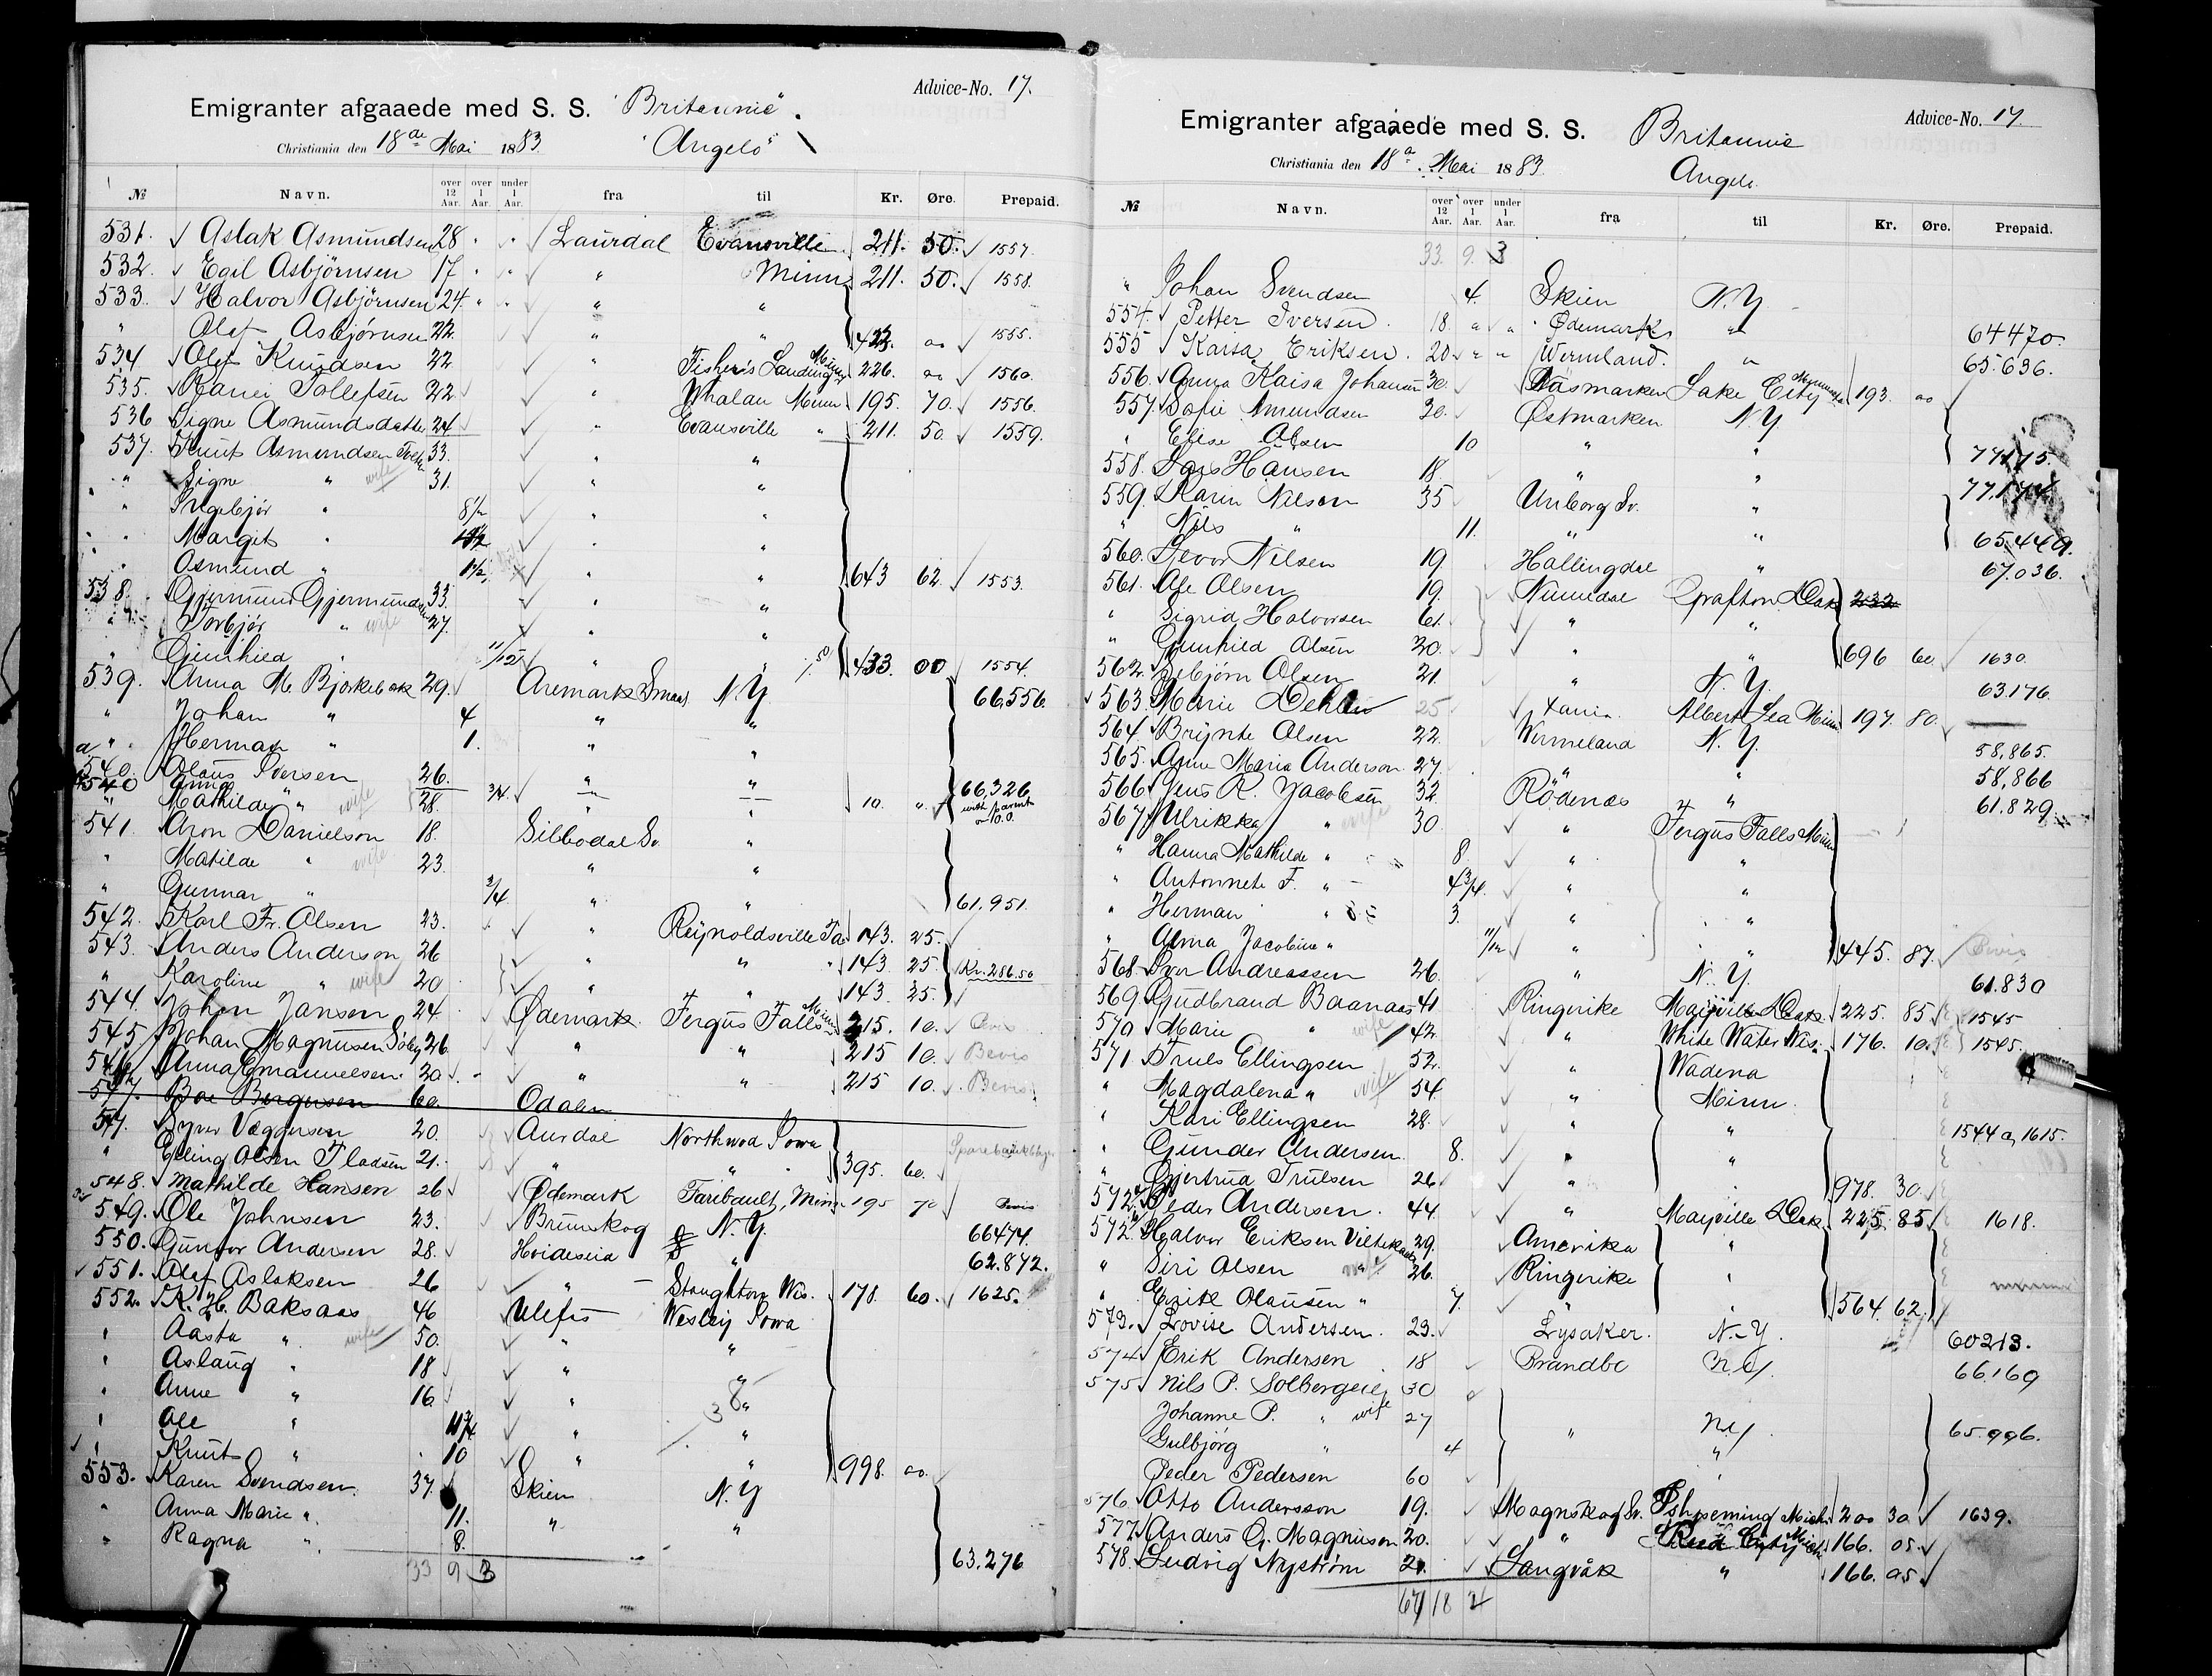 Advice-No. 17.
Emigranter afgaaede med S. S. "Britannie".
Christiania den 18de Mai 1883. "Angelo"
№ Navn. over 12 Aar. over 1 Aar. under 1 Aar. fra til Kr. Øre. Prepaid.
531. Aslak Asmundsen 28 Laurdal Evansville 211. 50. 1557.
532. Egil Asbjörnsen 17 " Minn 211. 50. 1558.
533. Halvor Asbjörnsen 24 " "
" Olaf Asbjørnsen 22 " " 423. 00 1555.
534 Olaf Knudsen 22 " Fisher's Landing Minn 226. 00 1560.
535. Ranei Tollefsen 22 " Whalan Minn 195. 70. 1556.
536 Signe Asmundsdatter 24 " Evansville " 211. 50. 1559.
537. Knut Asmundsen 33. " "
" Signe " wife 31. " "
" Ingebjør " 8½ " "
" Margit " " "
" Asmund " 1½ " " 643 62. 1553.
538. Gjermund Gjermundsen 33. " "
" Torbjør " wife 27. " "
" Gunhild " 11/12 " " 433 00 1554.
539. Anna M. Bjørkebæk 29. Aremark Smaal N.Y. 66,556.
" Johan " 4 " "
" Herman " 1. " "
540. Olaus Iversen 26. " " 66,326
540 Anna Mathilde " wife 28 3/4 " " 10. " with parents
541. Aron Danielson 18. Silbodal Sv. "
" Matilde " wife 23. " "
" Gunnar " 3/4 " " 61,951.
542. Karl Fr. Olsen 23. " Reynoldsville Pa 143. 25.
543. Anders Anderson 26 " " 143 25. Kr. 286.50
" Karoline " wife 20 " " 143 25.
544. Johan Jansen 24 Ødemark. Fergus Falls Minn 215. 10. Bevis
545 Johan Magnusen Söby 26. " " 215 10. Bevis
546 Anna Emanuelsen. 20 " " 215 10. Bevis
547. Boe Borgersen 60. Odalen
547. Syver Væggersen 20. Aurdal Northwood Iowa
" Elling Olsen Fladsen 21. " " 395. 60.
548. Mathilde Hansen 26 Ødemark Faribault, Minn 195 70 Bevis
549. Ole Johnsen 23. Brunskog N.Y. 66474.
550. Gunvor Andersen 28. Hvideseid " 62.872.
551. Olaf Aslaksen 26 " Stoughton Wis. 178. 60. 1625.
552. K. H. Baksaas 46 Ulefos Wesley Iowa
" Aasta " wife 50. " "
" Aslaug " 18 " "
" Anne " 16. " "
" Ole " 11¾ " "
" Knut " 10 " " 998. 00.
553. Karen Svendsen. 37. Skien N.Y
" Anna Marie " 11. " "
" Ragna " 8. 63.276
33 9 3
Advice-No. 17.
Emigranter afgaaede med S. S. Britannie
Christiania den 18de Mai 1883. Angelo.
№ Navn. over 12 Aar. over 1 Aar. under 1 Aar. fra til Kr. Øre. Prepaid.
33. 9. 3
" Johan Svendsen 4. Skien N.Y
554. Petter Iversen. 18. Ødemark " 64470.
555 Kaisa Eriksen. 20 Wermland. " 65.636.
556. Anna Kaisa Johansen 30. Näsmarken Lake City Minnesota 193. 00
557. Sofie Amundsen 20. Østmarken N.Y.
" Elise Olsen 10 " " 77175.
558. Lars Hansen 18. " "
559. Karin Nilson 35 Unborg Sv. "
" Nils " 11. " 65,449.
560. Gevor Nilsen 19. Hallingdal " 67.036.
561. Ole Olsen 19. Numedal Grafton Dak 232
" Sigrid Halvorsen 61. " "
" Gunhild Olsen 20. " " 696 60. 1630.
562. Asbjörn Olsen 21. " N.Y. 63.176
563. Marie Dehlin 25 Xania. Albert Lea Minn 197. 80.
564. Brynte Olsen 22. Wermeland N.Y. 58,865.
565. Anna Maria Anderson 27. " " 58,866
566. Jens R. Jacobsen 32. Rödenæs " 61.829
567. Ulrikka " wife 30. " Fergus Falls Minn
" Hanna Mathilde " 8. " "
" Antonnete F. " 4 3/4. " "
" Herman " 3. " "
" Alma Jacobine " 11/12 " " 445. 87. Bevis
568. Iver Andreassen 26. " N.Y. 61.830
569. Gudbrand Baanaas 41 Ringerike Mayville Dak. 225. 85 1545
570. Marie " wife 42 " White Water Wis. 176. 10. 1545.
571 Truls Ellingsen 52. " Wadena
" Magdalena " wife 54. " Minn.
" Kari Ellingsen 28. " " 1544 a, 1615.
" Gunder Andersen. 8. "
" Gjertrud Trulsen 26 " " 978. 30.
572a Peder Andersen. 44. " Mayville Dak. 225. 85 1618.
572b Halvor Eriksen 29. Amerika "
" Siri Olsen wife 26. Ringerike "
" Erik Olausen " 7. " " 564. 62.
573. Lovise Andersen. 23. Lysaker. N.Y. 60213.
574 Erik Andersen 18 Brandbo N.Y. 66.169
575 Nils P. Solbergeie 30
Johanne P. " wife 27 " N.Y. 65.996.
Gulbjörg " 4 "
Peder Pedersen 60 "
576. Otto Andersson 19. Magnskog Sv. Ishpeming Mich. 200 30 1639.
577. Anders G. Magnusson 20. " Reed City Mich 166. 05.
578. Ludvig Nyström 21. Langvåk " 166. 05.
67 18 4